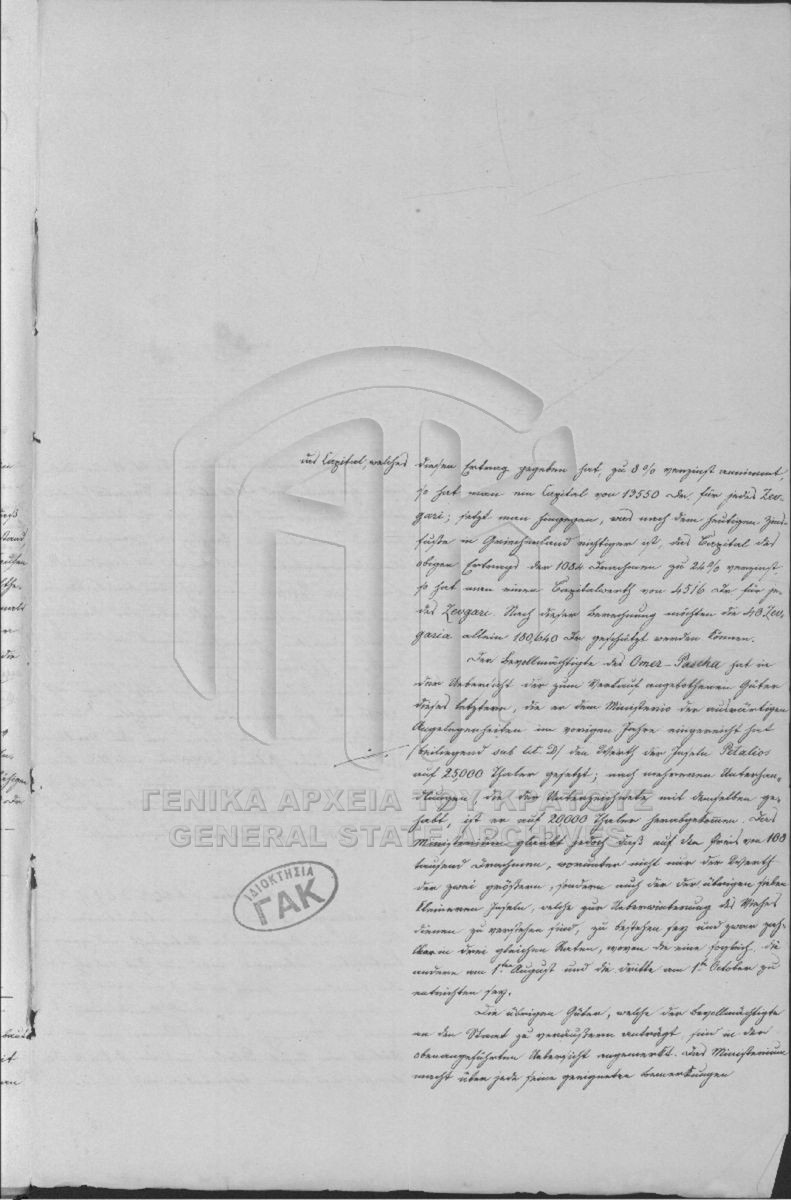 das Capital, welches diesen Ertrag gegeben hat, zu 8 % verzinst annimmt,
so hat man ein Capital von 13550 Dr. für jedes Zev-
gari; setzt man hingegen, was nach dem heutigen Zins-
fuße in Griechenland richtiger ist, das Capital des
obigen Ertrags der 1084 Drachmen zu 24 % verzinst,
so hat man einen Capitalwerth von 4516 Dr für je-
des Zevgari. Nach dieser Berechnung möchten die 40 Zev-
garia allein 180,640 Dr geschätzt werden können.
Der Bevollmächtigte des Omer-Pascha hat in
der Uebersicht der zum Verkauf angebothenen Güter
dieses letztern, die er dem Ministerio der auswärtigen
Angelegenheiten im vorigen Jahre eingereicht hat
(beiliegend sub lit. D) den Werth der Inseln Petalios
auf 25000 Thaler gesetzt; nach mehreren Unterhan-
dlungen, die der Unterzeichnete mit demselben ge-
habt, ist er auf 20000 Thaler herabgekommen. Das
Ministerium glaubt jedoch daß auf den Preis von 100
tausend Drachmen, worunter nicht nur der Werth
der zwei größern, sondern auch der der übrigen sieben
kleineren Inseln, welche zur Ueberwinterung des Viehes
dienen zu verstehen sind, zu bestehen sey und zwar zahl-
bar in drei gleichen Raten, wovon die eine sogleich, die
andere am 1ten August und die dritte am 1ten October zu
entrichten sey.
Die übrigen Güter, welche der Bevollmächtigte
an den Staat zu veräußern anträgt, sind in der
obenangeführten Uebersicht angemerkt. Das Ministerium
macht über jede seine geeigneten Bemerkungen
ΓΕΝΙΚΑ ΑΡΧΕΙΑ ΤΟΥ ΚΡΑΤΟΥΣ
GENERAL STATE ARCHIVES
ΙΔΙΟΚΤΗΣΙΑ
ΓΑΚ